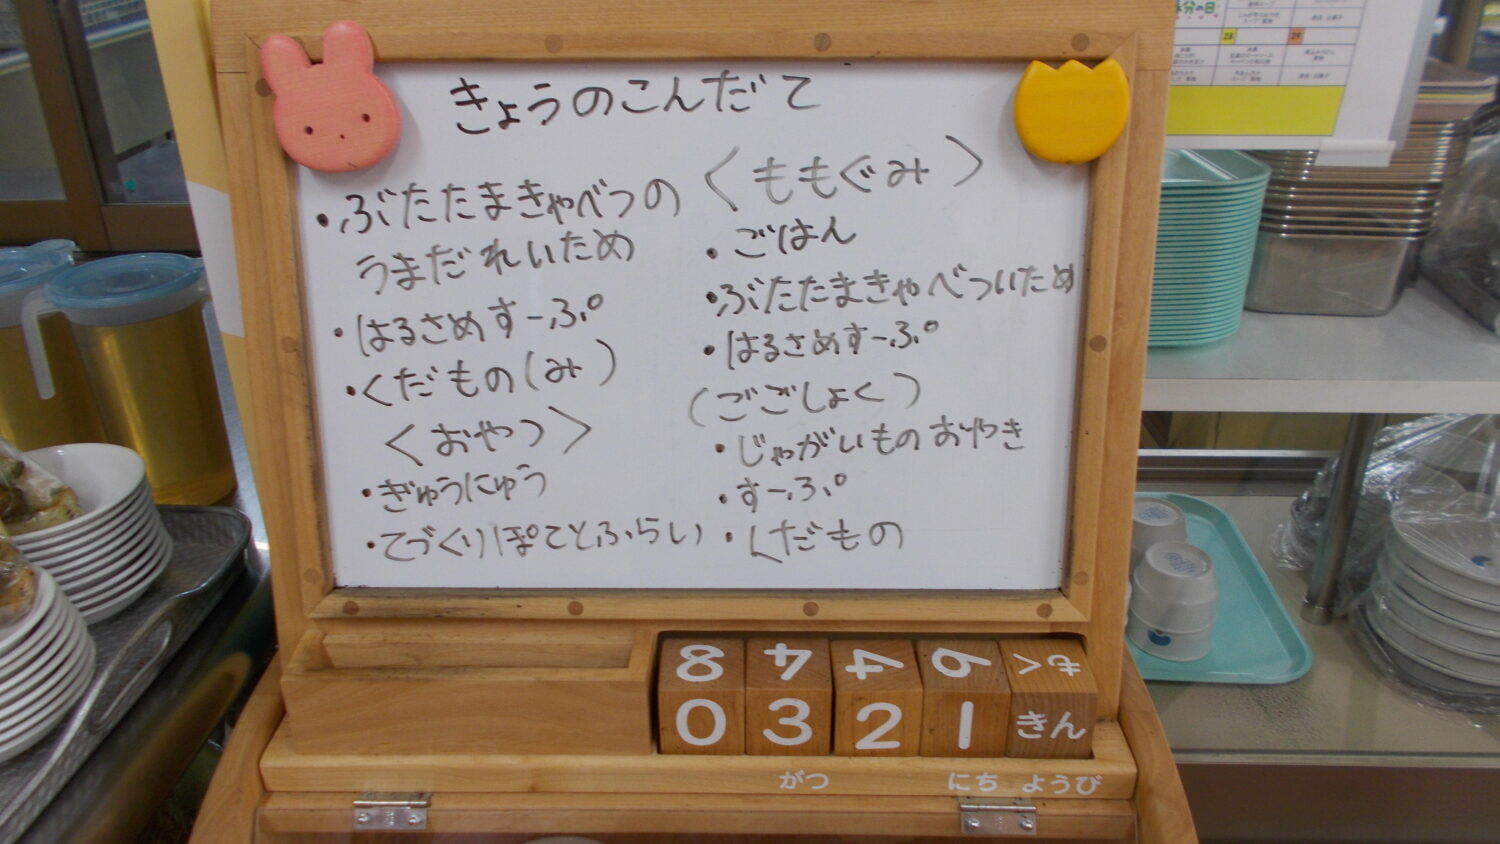 きょうのこんだて
・ぶたたまきゃべつの
うまだれいため
・はるさめすーぷ
・くだもの(み)
<おやつ>
・ぎゅうにゅう
・てづくりぽてとふらい
<ももぐみ>
・ごはん
・ぶたたまきゃべついため
・はるさめすーぷ
(ごごしょく)
・じゃがいものおやき
・すーぷ
・くだもの
8 4 4 6 もく
0 3 2 1 きん
がつ にち ようび
分の日
28 29